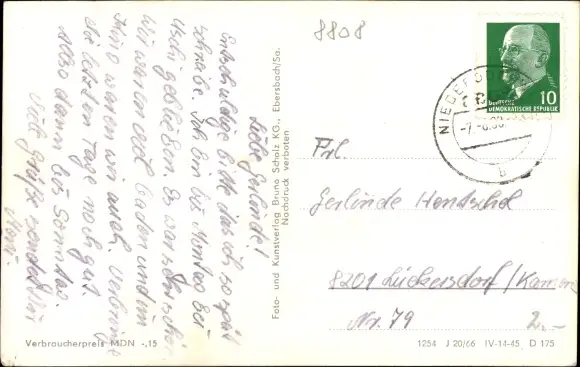 8808
Liebe Gerlinde!
Entschuldige bitte das ich so spät
schreibe. Ich bin bis Montag bei
Uschi geblieben. Es war sehr schön
Wir waren viel baden und im
Kino waren wir auch. Verbringe
die letzten Tage noch gut.
Also dann bis Sonntag.
Viele Grüße sendet Dir
Foto- und Kunstverlag Bruno Scholz KG., Ebersbach/Sa.
Nachdruck verboten
DEUTSCHE
DEMOKRATISCHE REPUBLIK
10
b
Frl.
Gerlinde Hentschel
8201 Lückersdorf/Kamenz
Nr. 79
2.-
Verbraucherpreis MDN -,15
1254 J 20/66 IV-14-45 D 175